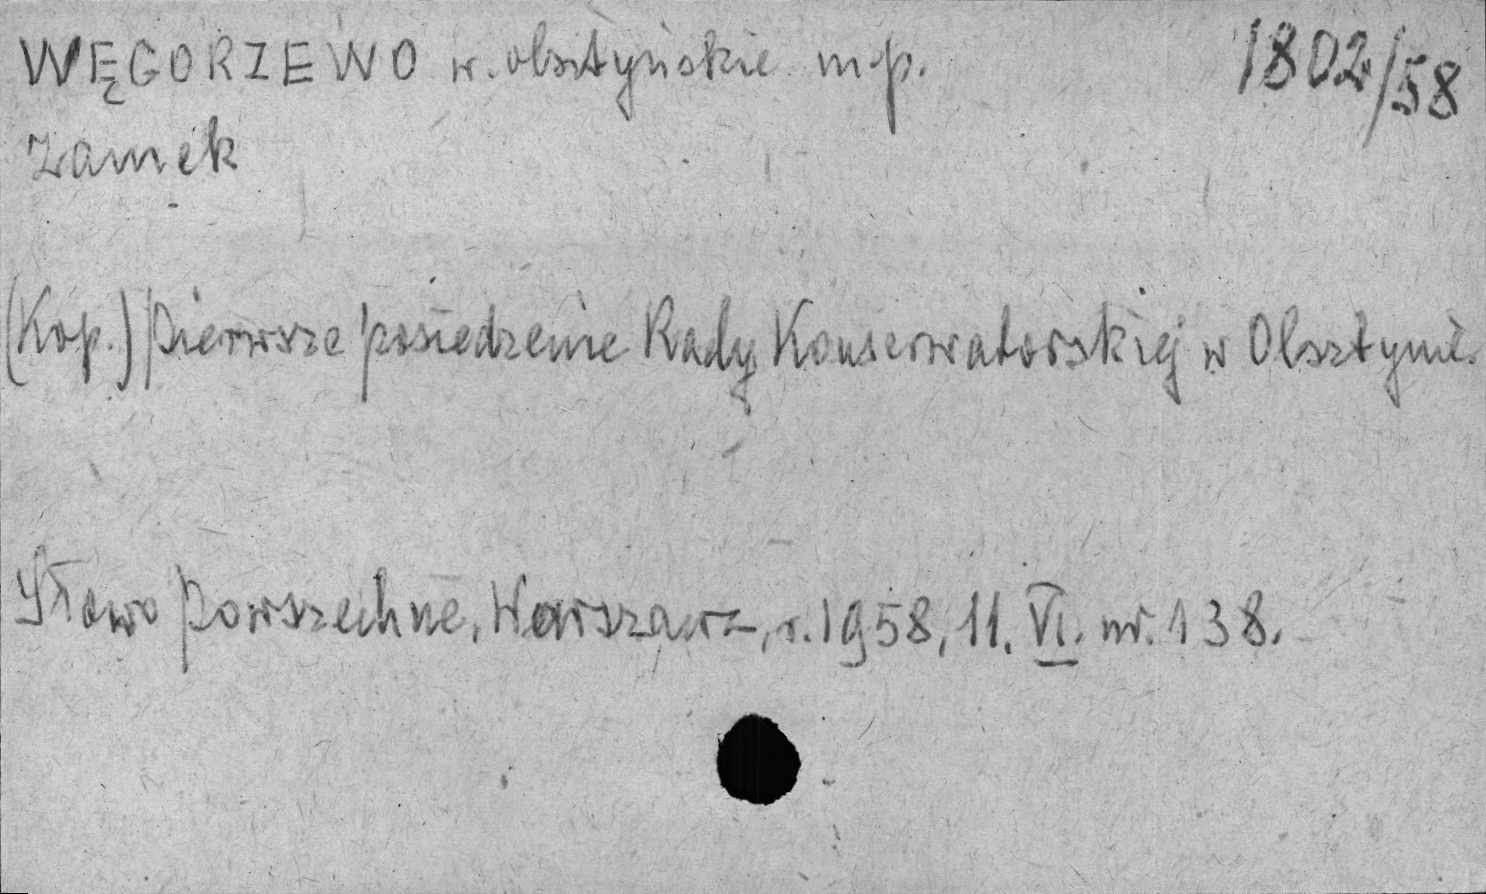 WĘGORZEWO w. olsztyńskie m. p. 1802/58
Zamek
(Kop.) Pierwsze posiedzenie Rady Konserwatorskiej w Olsztynie.
Słowo Powszechne, Warszawa, r. 1958, 11. VI. nr. 138.